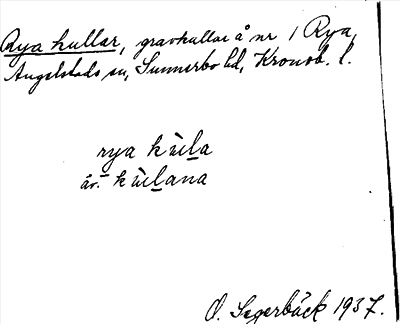 Rya kullar, gravkullar å nr 1 Rya,
Angelstads sn, Sunnerbo hd, Kronob. l.
rya kùl̲a
är. kùl̲ana
O. Segerbäck 1937.